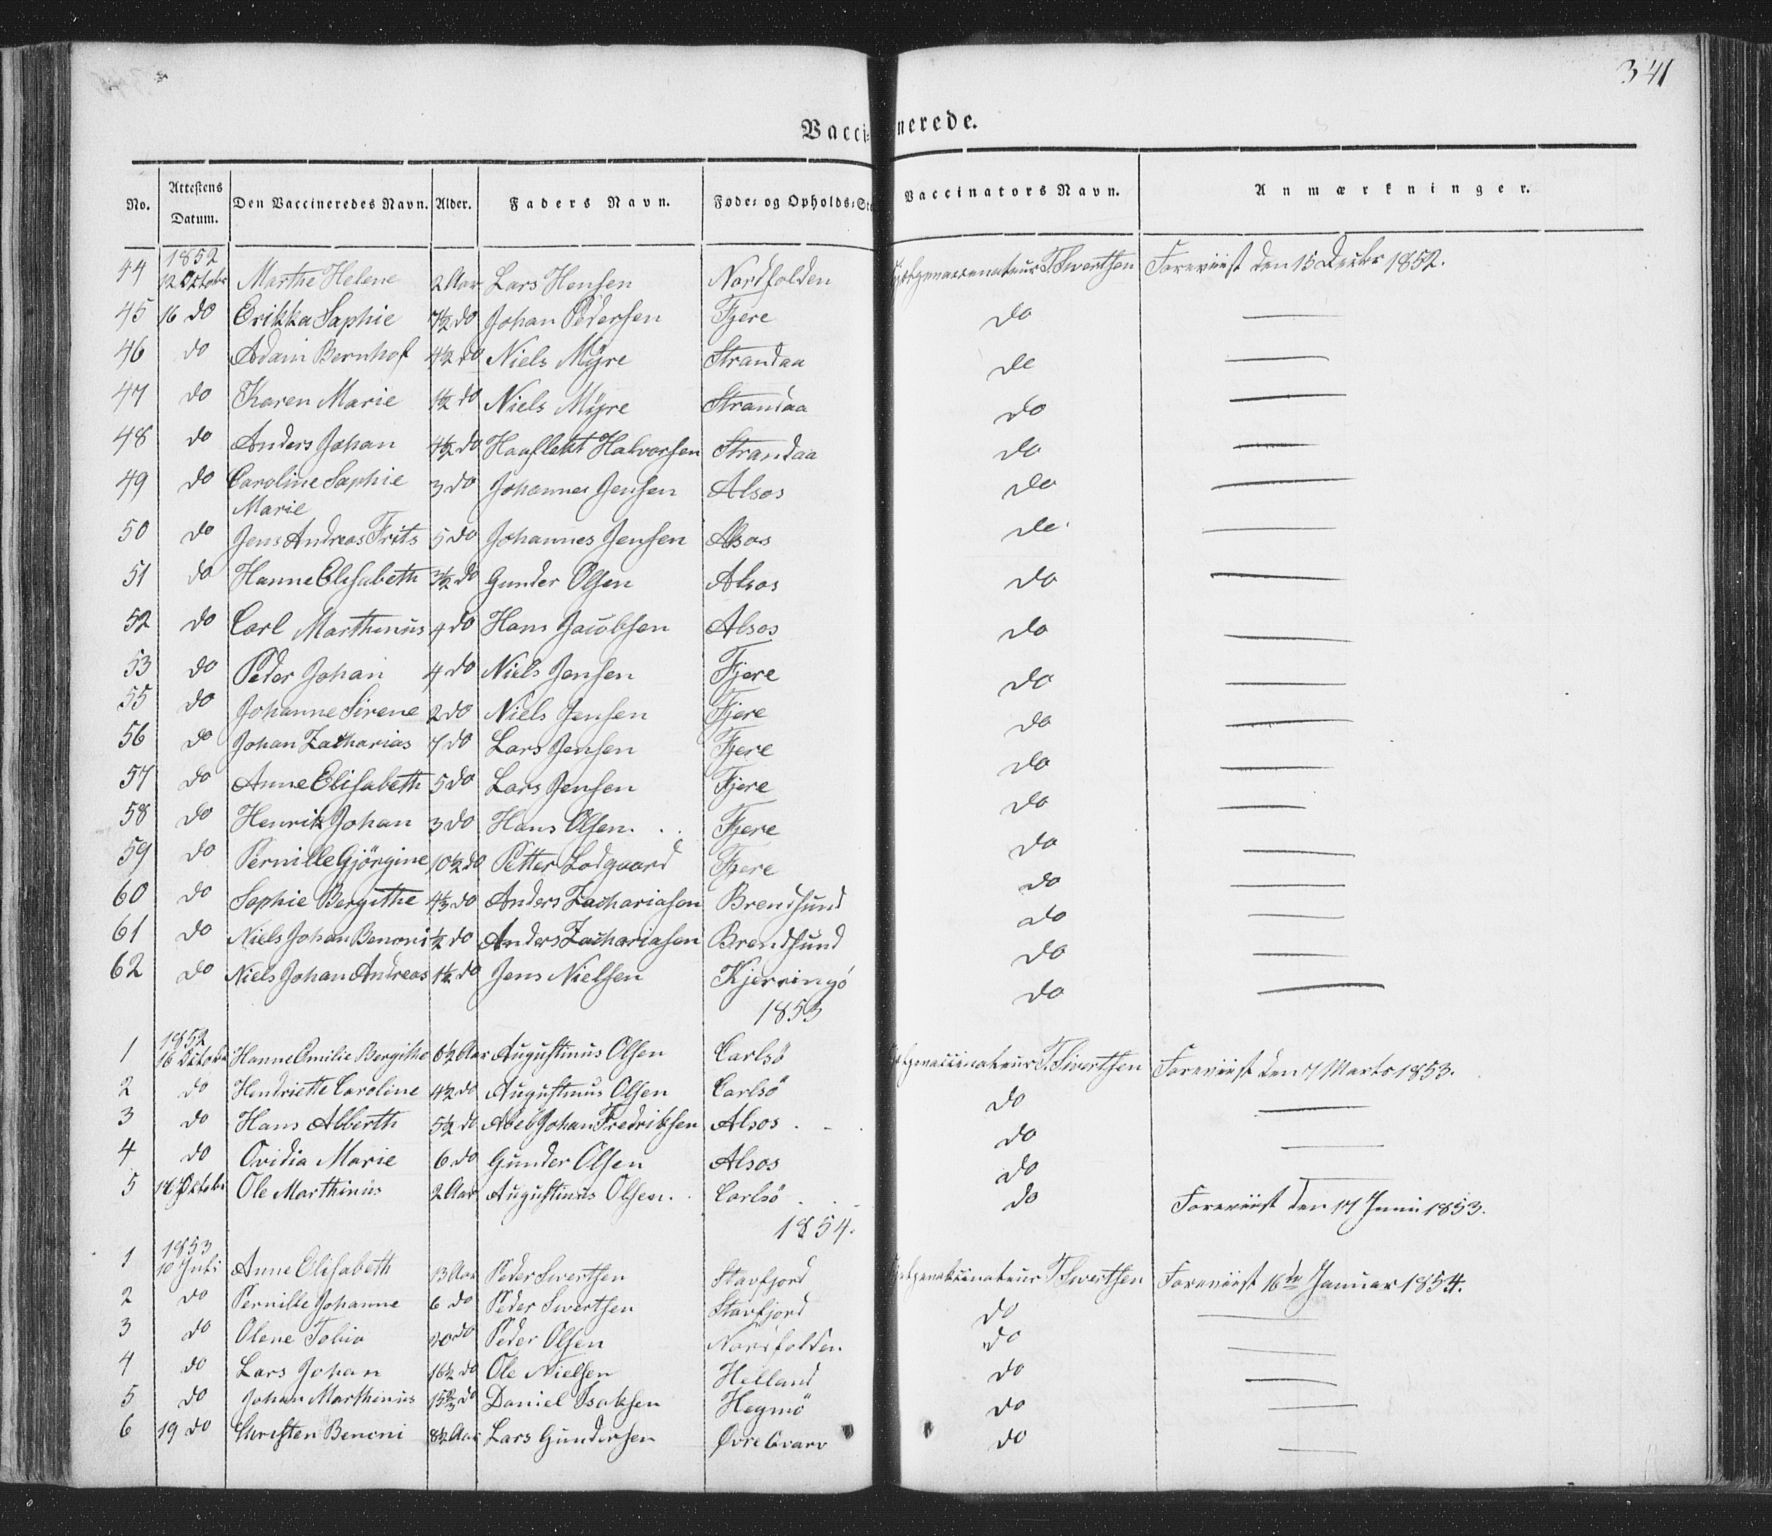 341
Vaccinerede.
No. Attestens Datum. Den Vaccineredes Navn. Alder. Faders Navn. Føde- og Opholds-Ste Vaccinators Navn. Anmærkninger.
1852
44 12 Octobr Marthe Helene 2 Aar Lars Hensen Nordfolden T. Siverthsen Foreviist den 15 Decbr 1852.
45 16 do Erikka Saphie 7½ do Johan Pedersen Fjere do —
46 do Adam Bernhof 4½ do Niels Myre Strandaa do —
47 do Karen Marie 1½ do Niels Myre Strandaa do —
48 do Anders Johan 4½ do Halvorsen Strandaa do —
49 do Caroline Saphie 3 do Johannes Jensen Alsos do —
Marie
50 do Jens Andreas Frits 5 do Johannes Jensen Alsos do —
51 do Hanne Elisabeth 3½ do Gunder Olsen Alsos do —
52 do Carl Marthinus 4 do Hans Jacobsen Alsos do —
53 do Peder Johan 4 do Niels Jensen Fjere do —
55 do Johanne Sirene 2 do Niels Jensen Fjere do —
56 do Johan Zacharias 7 do Lars Jensen Fjere do —
57 do Anne Elisabeth 5 do Lars Jensen Fjere do —
58 do Henrik Johan 3 do Hans Olsen Fjere do —
59 do Pernille Gjørgine 10½ do Petter Lodgaard Fjere do —
60 do Sophie Bergithe do Anders Zachariasen Brendsund do —
61 do Niels Johan Benoni ½ do Anders Zachariasen Brendsund do —
62 do Niels Johan Andreas 1½ do Jens Nielsen Kjerringö do —
1853
1852
1 16 Octobr Hanne Emilie Bergithe 6½ Aar Augustinus Olsen Carlsö T. Siverthsen Foreviist den 7 Marts 1853.
2 do Hendriette Caroline 4½ do Augustinus Olsen Carlsö do —
3 do Hans Alberth 5½ do Johan Fredriksen Alsos do —
4 do Ovidia Marie 6 do Gunder Olsen Alsos do —
5 Octobr Ole Marthinus 2 Aar Augustinus Olsen Carlsö do Foreviist den 17 Junii 1853.
1854.
1853
1 10 Juli Anne Elisabeth 13 Aar Peder Siverthsen Stavfjord T. Siverthsen Foreviist 16de Januar 1854.
2 do Pernille Johanne 6 do Peder Siverthsen Stavfjord do —
3 do Olene Tobia do Peder Olsen Nordfolden do —
4 do Lars Johan 16½ do Ole Nielsen Helland do —
5 do Johan Marthinus do Daniel Isaksen Hegmö do —
6 19 do Christen Benoni 8½ Aar Lars Gundersen Øvre Qvarv do —